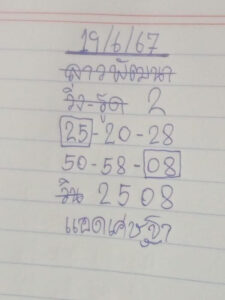 19/6/67
ลาวพัฒนา
วิ่ง-รูด 2
25-20-28
50-58-08
วิน 2508
แอดเศรฐา